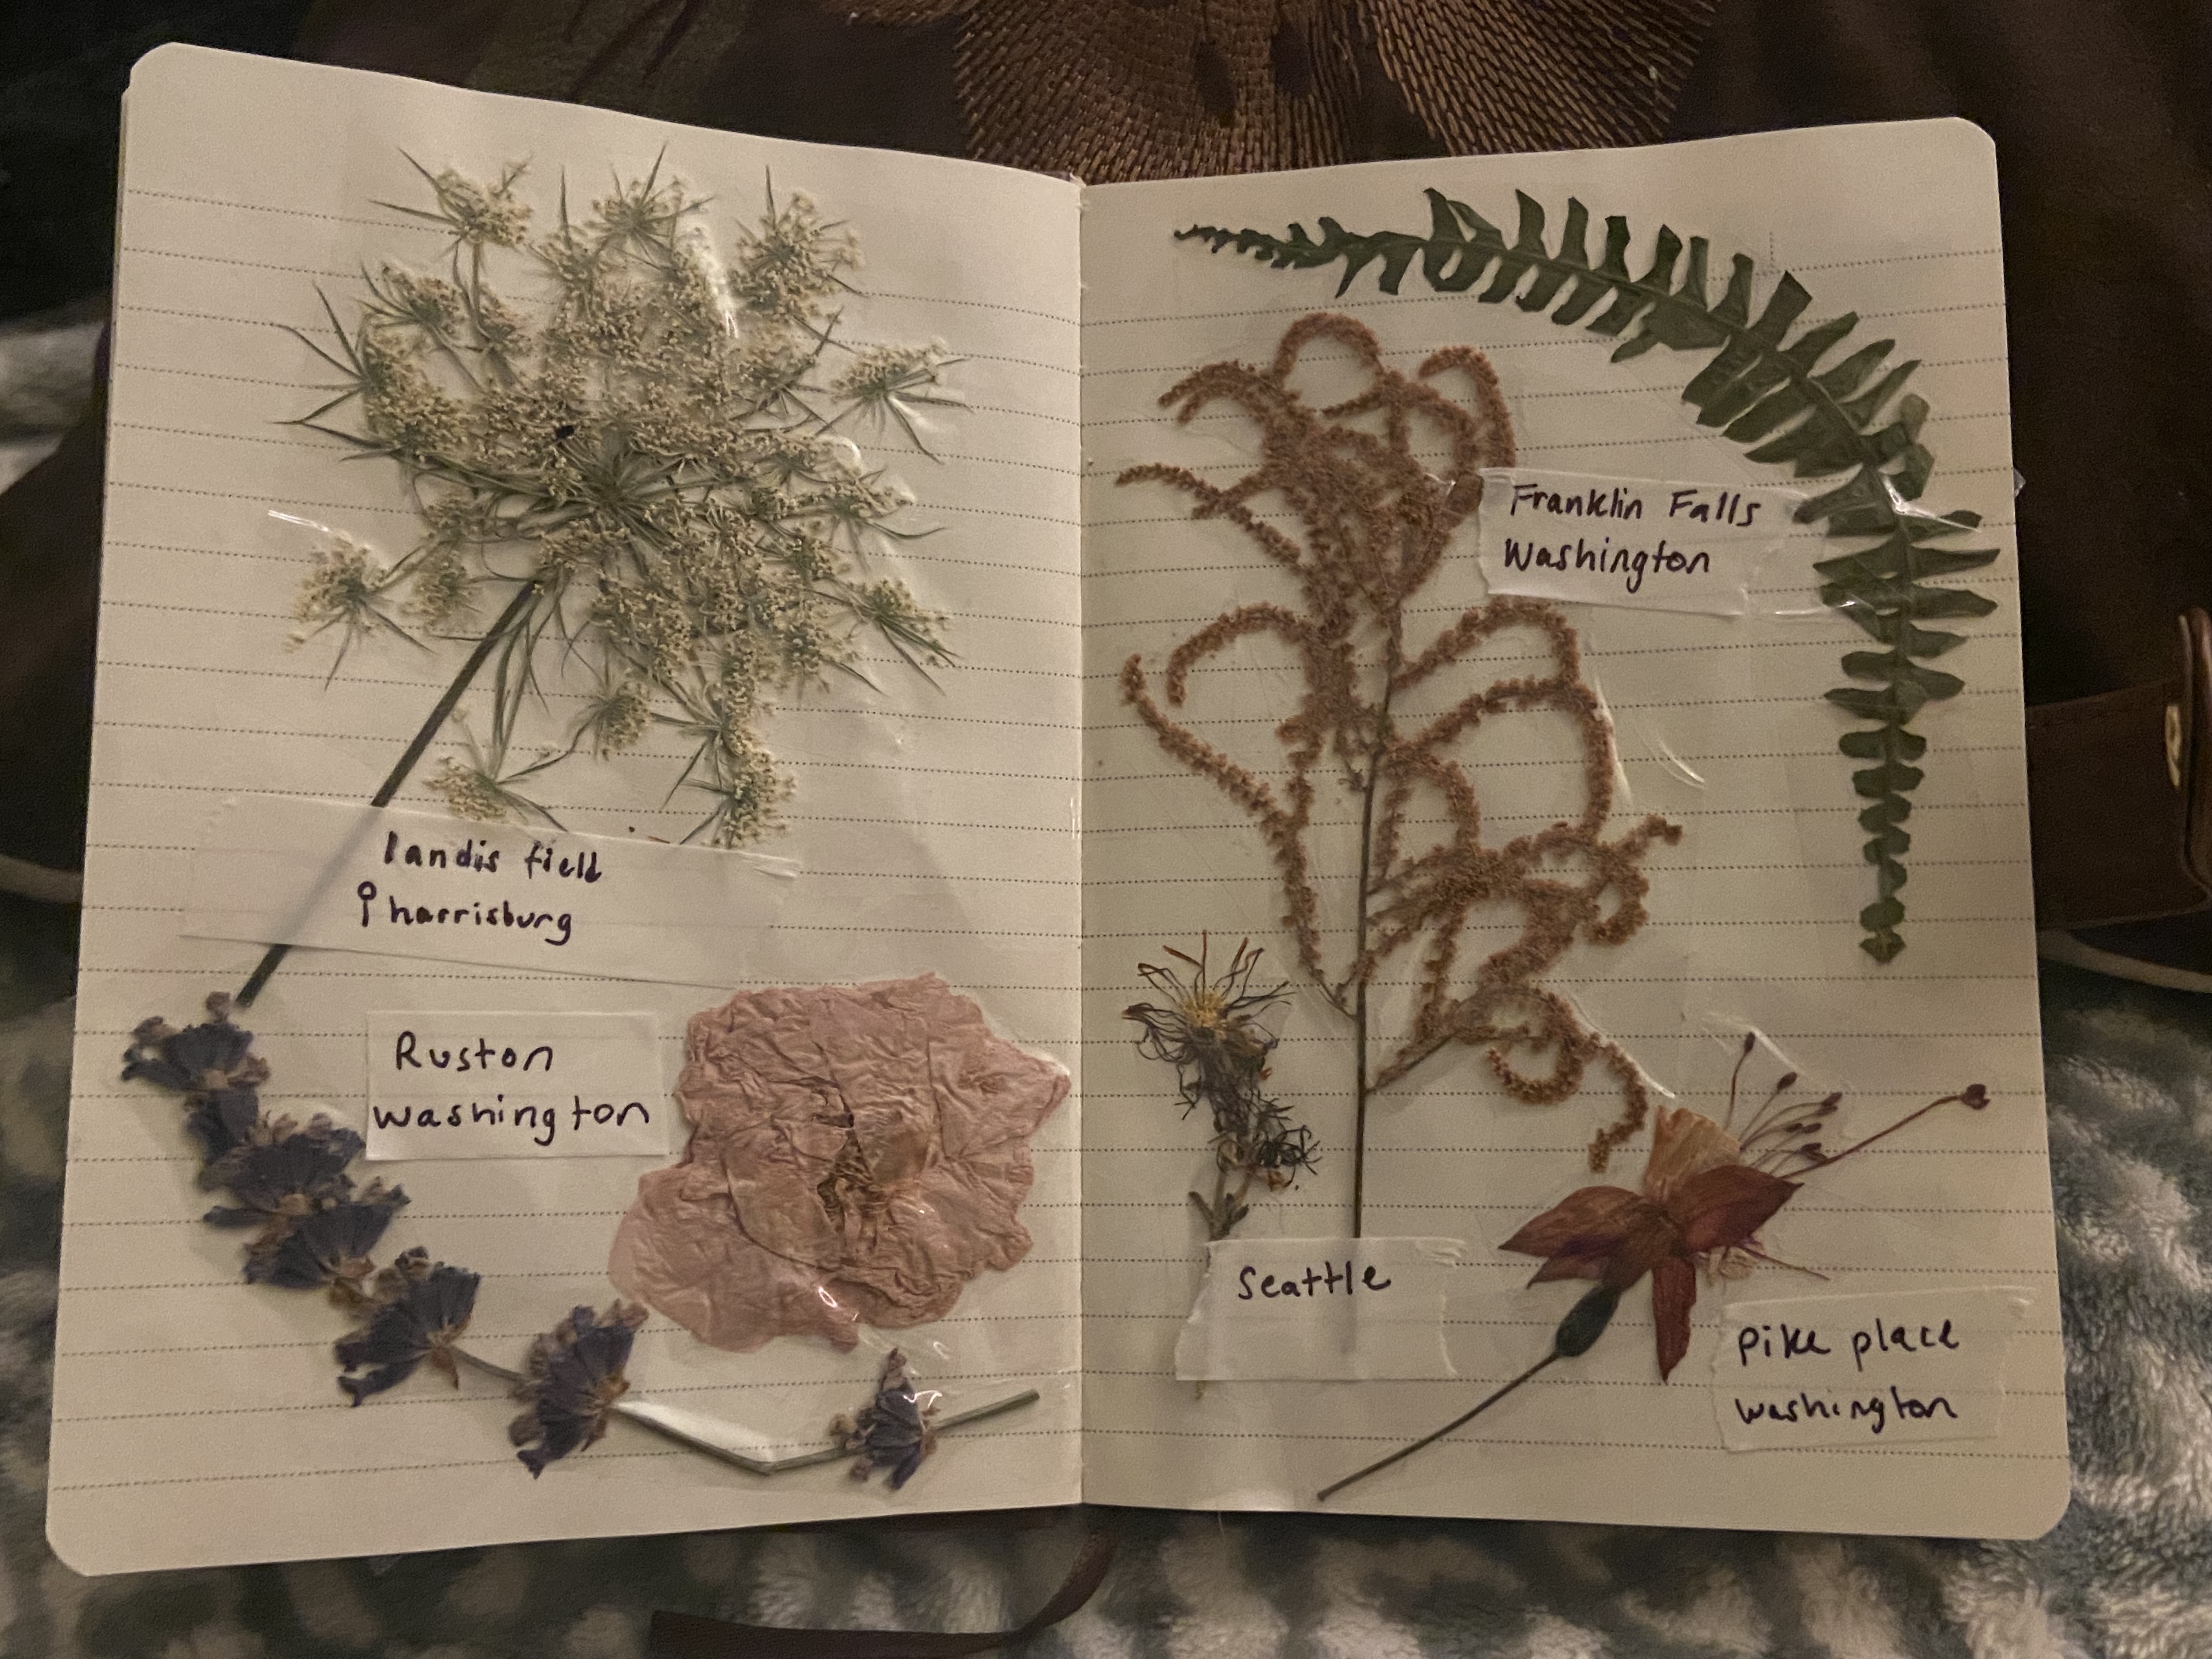 landis field
harrisburg
Ruston
washington
Franklin Falls
Washington
Seattle
pike place
washington